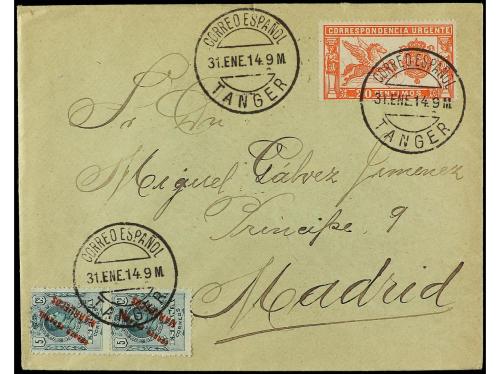 CORREO ESPAÑOL
31.ENE.14.9M
TANGER
CORRESPONDENCIA URGENTE
20 CENTIMOS
CORREO ESPAÑOL
31.ENE.14.9M
TANGER
Sr. Dn.
Miguel Gálvez Jimenez
Principe, 9
Madrid
CORREO ESPAÑOL
31.ENE.14.9M
TANGER
5
5